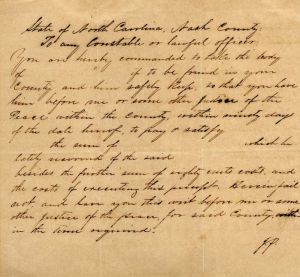 State of North Carolina, Nash County:
To any Constable or lawful officer
You are hereby commanded to take the body
of if to be found in your
County and him safely keep, so that you have
him before me or some other Justice of the
Peace within the County within ninety days
of the date hereof, to pay & satisfy
the sum of which he
lately recovered of the said
besides the further sum of eighty cents cost, and
the costs of executing this precept. Herein fail
not, and have you this writ before me or some
other Justice of the peace for said County,
in the time required.
JP